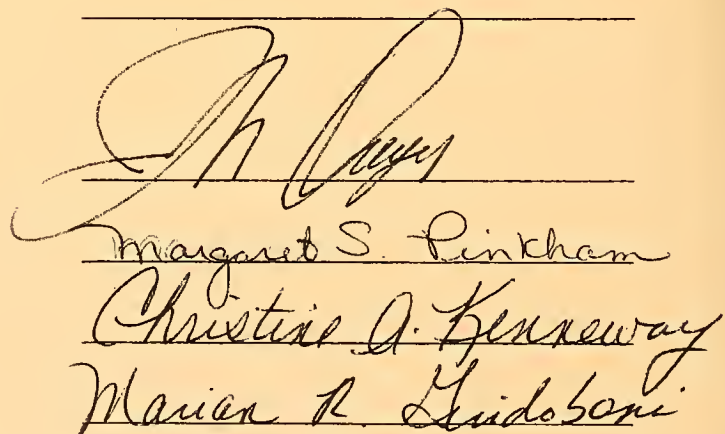 Margaret S. Pinkham
Christine A. Kenneway
Marian R. Guidoboni